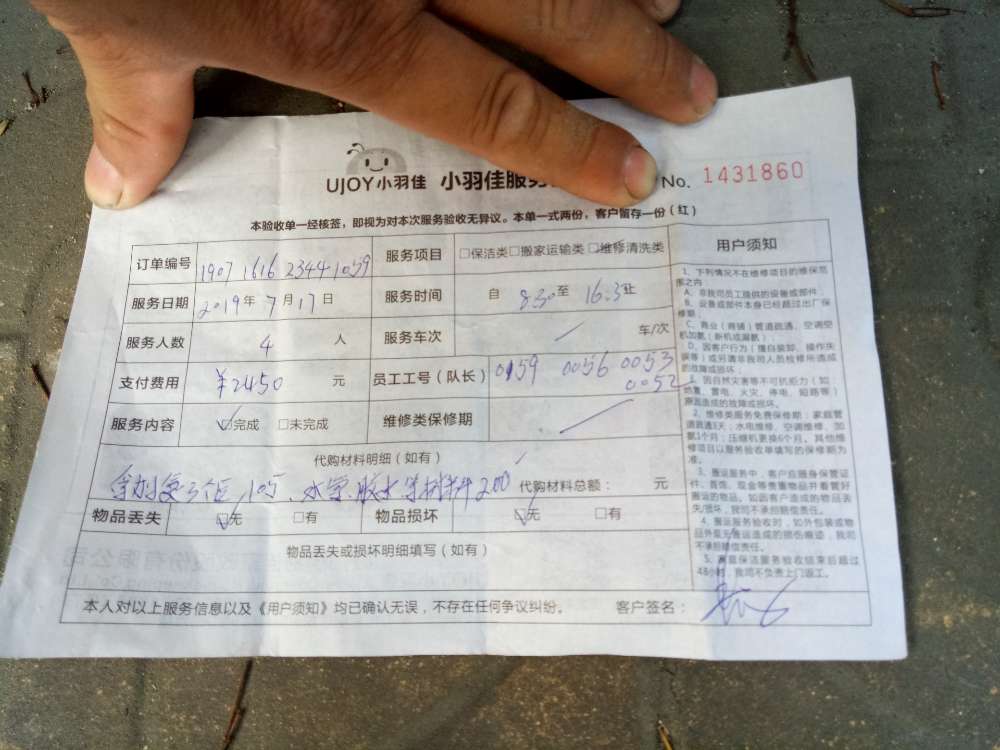 UJOY小羽佳 小羽佳服务
No. 1431860
本验收单一经核签，即视为对本次服务验收无异议。本单一式两份，客户留存一份（红）
订单编号 1907 1616 2344 1059 服务项目 □保洁类□搬家运输类□维修清洗类
服务日期 2019年7月17日 服务时间 自 8.30至 16.3止
服务人数 4 人 服务车次 车/次
支付费用 ￥2450 元 员工工号（队长） 0159 0056 0053
0052
服务内容 ☑完成 □未完成 维修类保修期
代购材料明细（如有）
水 胶水 材料200 代购材料总额： 元
物品丢失 ☑无 □有 物品损坏 ☑无 □有
物品丢失或损坏明细填写（如有）
本人对以上服务信息以及《用户须知》均已确认无误，不存在任何争议纠纷。 客户签名：
用户须知
1、下列情况不在维修项目的维保范
围之内：
A、非我司员工提供的设备或部件，
B、设备或部件本身已经超过出厂保
修期，
C、商业（商铺）管道疏通、空调空
机加氨（新机或漏氨）；
D、因客户行为（擅自装卸、操作失
误等）或另请非我司人员检修所造成
的故障或损坏；
E、因自然灾害等不可抗拒力（如：
地震、雷电、火灾、停电、短路等）
原因造成的故障或损坏。
2、维修类服务免费保修期：家庭管
道疏通3天；水电维修、空调维修、加
氨1个月；压缩机更换6个月。其他维
修项目以服务验收单填写的保修期为
准。
3、搬运服务中，客户应随身保管证
件、首饰、现金等贵重物品并看管好
搬运的物品，如因客户造成的物品丢
失/损坏，我司不承担赔偿责任。
4、搬运服务验收时，如外包装或物
品外壳无搬运造成的损伤痕迹，我司
不承担赔偿责任。
5、家庭保洁服务验收结束后超过
48小时，我司不负责上门返工。